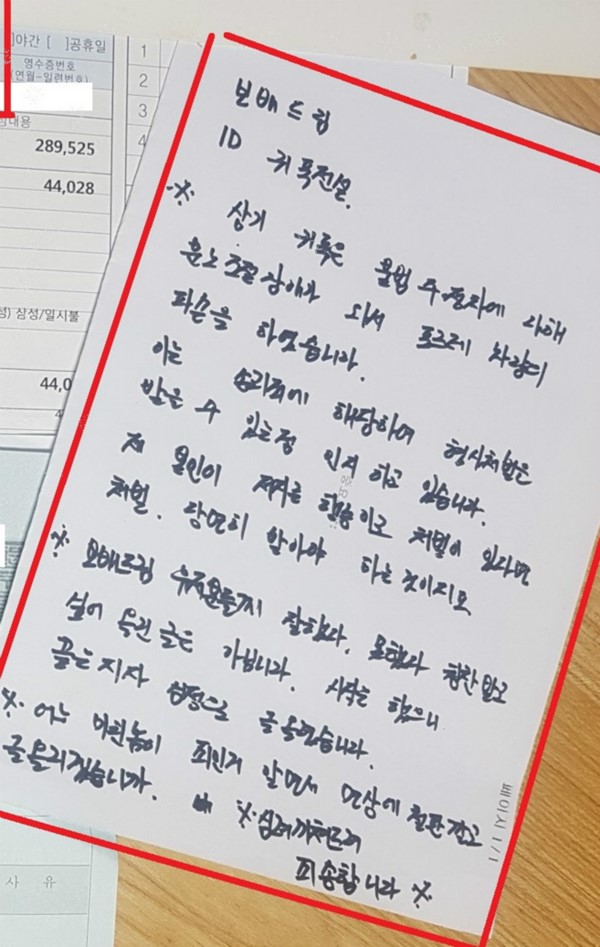 ]야간 [ ]공휴일
영수증번호
(연월-일련번호)
내용
289,525
44,028
삼성/일시불
44,0
사 유
1
2
3
4
보배드림
ID 귀폭전설.
※ 상기 귀폭은 불법 주·정차에 대해
분노조절장애가 와서 포르쉐 차량의
파손을 하였습니다.
이는 손괴죄에 해당하여 형사처벌을
받을 수 있는점 인지 하고 있습니다.
저 본인이 저지른 행동이고 처벌이 있다면
처벌. 당연히 받아야 하는 것이지요
※ 보배드림 유저분들께 잘했다. 못했다 칭찬 받고
싶어 올린 글은 아닙니다. 시작을 했으니
끝는 지자 심정으로 글 올렸습니다.
※ 어느 미친놈이 죄인거 알면서 면상에 철판깔고
글 올리겠습니까. ※ 심려끼쳐드려
죄송합니다 ※
페이지 1/1